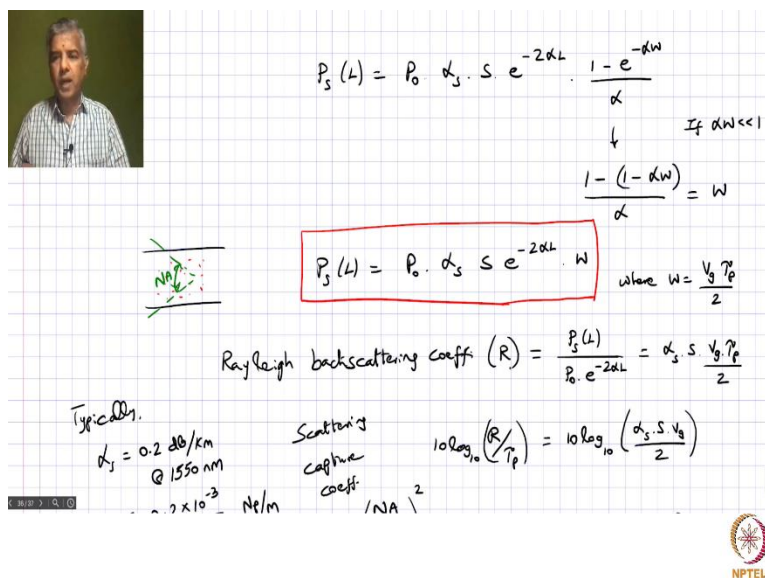 P_s(L) = P_0 . α_s . S . e^{-2αL} . (1 - e^{-αW}) / α
↓ If αW<<1
(1 - (1 - αW)) / α = W
NA
P_s(L) = P_0 . α_s S e^{-2αL} . W
where W = V_g τ_p / 2
Rayleigh backscattering coeff. (R) = P_s(L) / (P_0 . e^{-2αL}) = α_s . S . V_g . τ_p / 2
Typically,
α_s = 0.2 dB/km
@ 1550 nm
Scattering
capture
coeff.
10 log_10 (R/τ_p) = 10 log_10 (α_s . S . V_g / 2)
2 x 10^{-3} Np/m
(NA)^2
36/37
NPTEL